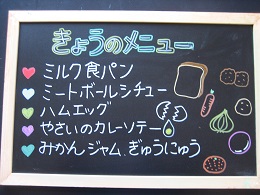 きょうのメニュー
ミルク食パン
ミートボールシチュー
ハムエッグ
やさいのカレーソテー
みかんジャム、ぎゅうにゅう